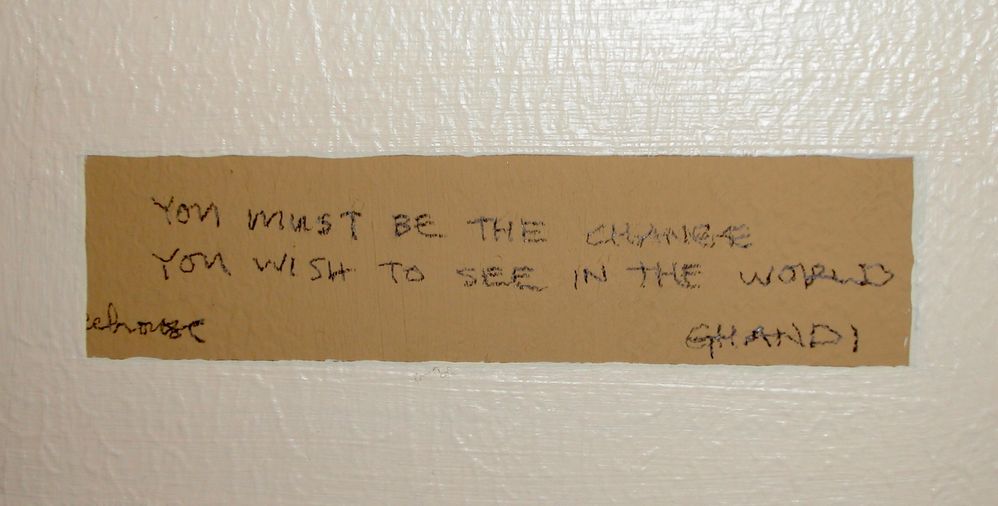 YOU MUST BE THE CHANGE
YOU WISH TO SEE IN THE WORLD
GHANDI